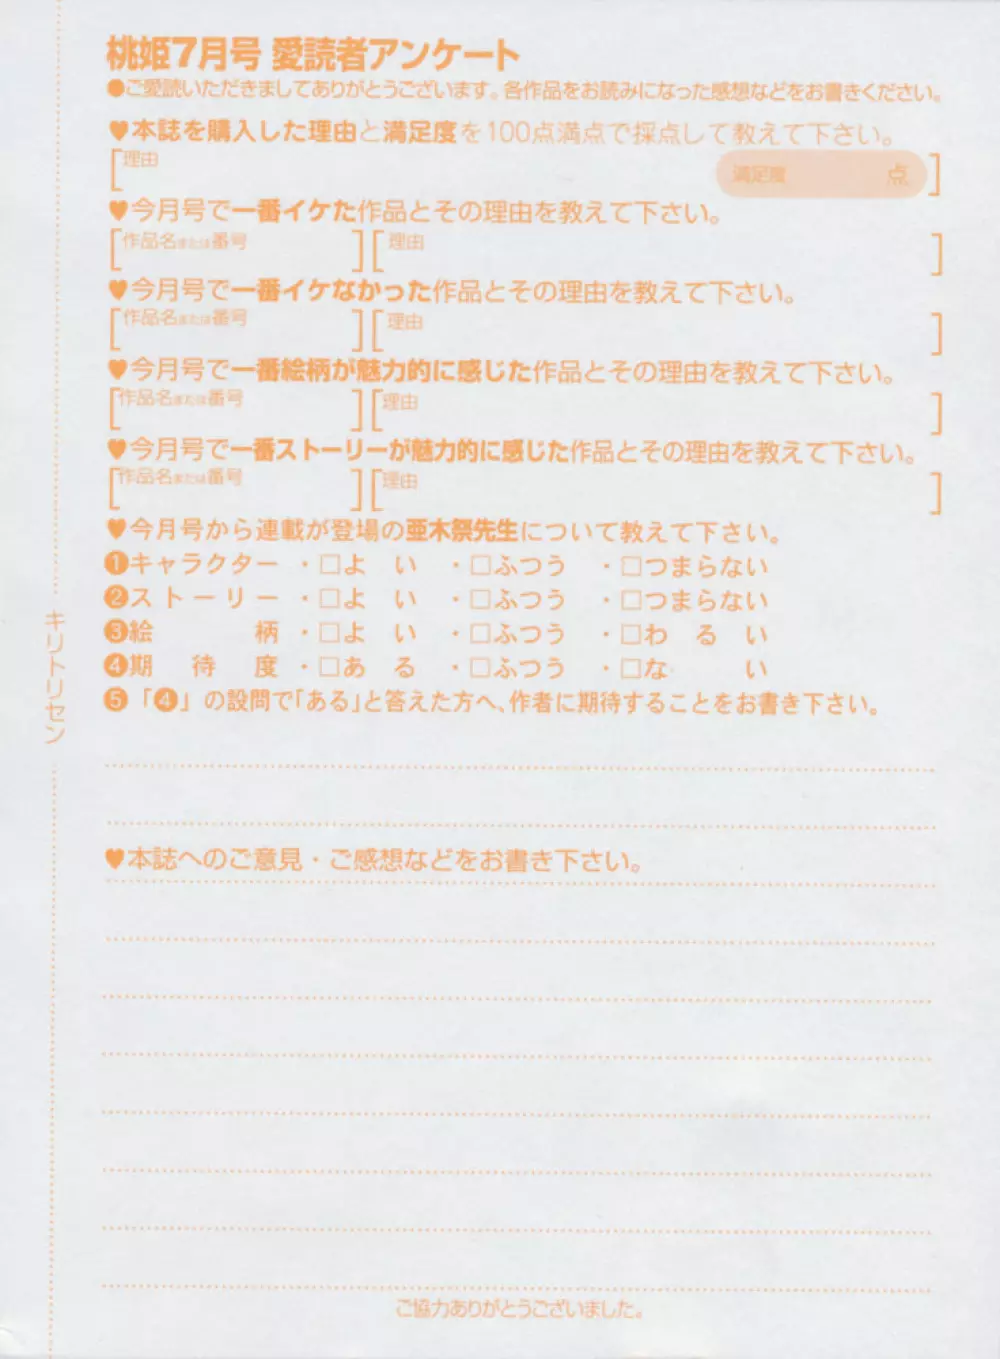 桃姫7月号 愛読者アンケート
●ご愛読いただきましてありがとうございます。各作品をお読みになった感想などをお書きください。
♥本誌を購入した理由と満足度を100点満点で採点して教えて下さい。
理由 満足度 点
♥今月号で一番イケた作品とその理由を教えて下さい。
作品名または番号 理由
♥今月号で一番イケなかった作品とその理由を教えて下さい。
作品名または番号 理由
♥今月号で一番絵柄が魅力的に感じた作品とその理由を教えて下さい。
作品名または番号 理由
♥今月号で一番ストーリーが魅力的に感じた作品とその理由を教えて下さい。
作品名または番号 理由
♥今月号から連載が登場の亜木祭先生について教えて下さい。
❶キャラクター ・□よ い ・□ふつう ・□つまらない
❷ストーリー ・□よ い ・□ふつう ・□つまらない
❸絵 柄 ・□よ い ・□ふつう ・□わ る い
❹期 待 度 ・□あ る ・□ふつう ・□な い
❺「❹」の設問で「ある」と答えた方へ、作者に期待することをお書き下さい。
♥本誌へのご意見・ご感想などをお書き下さい。
ご協力ありがとうございました。
キリトリセン